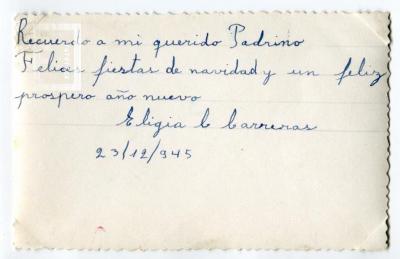 Recuerdo a mi querido Padrino
Felices fiestas de navidad y un feliz
prospero año nuevo
Eligia C Carreras
23/12/945